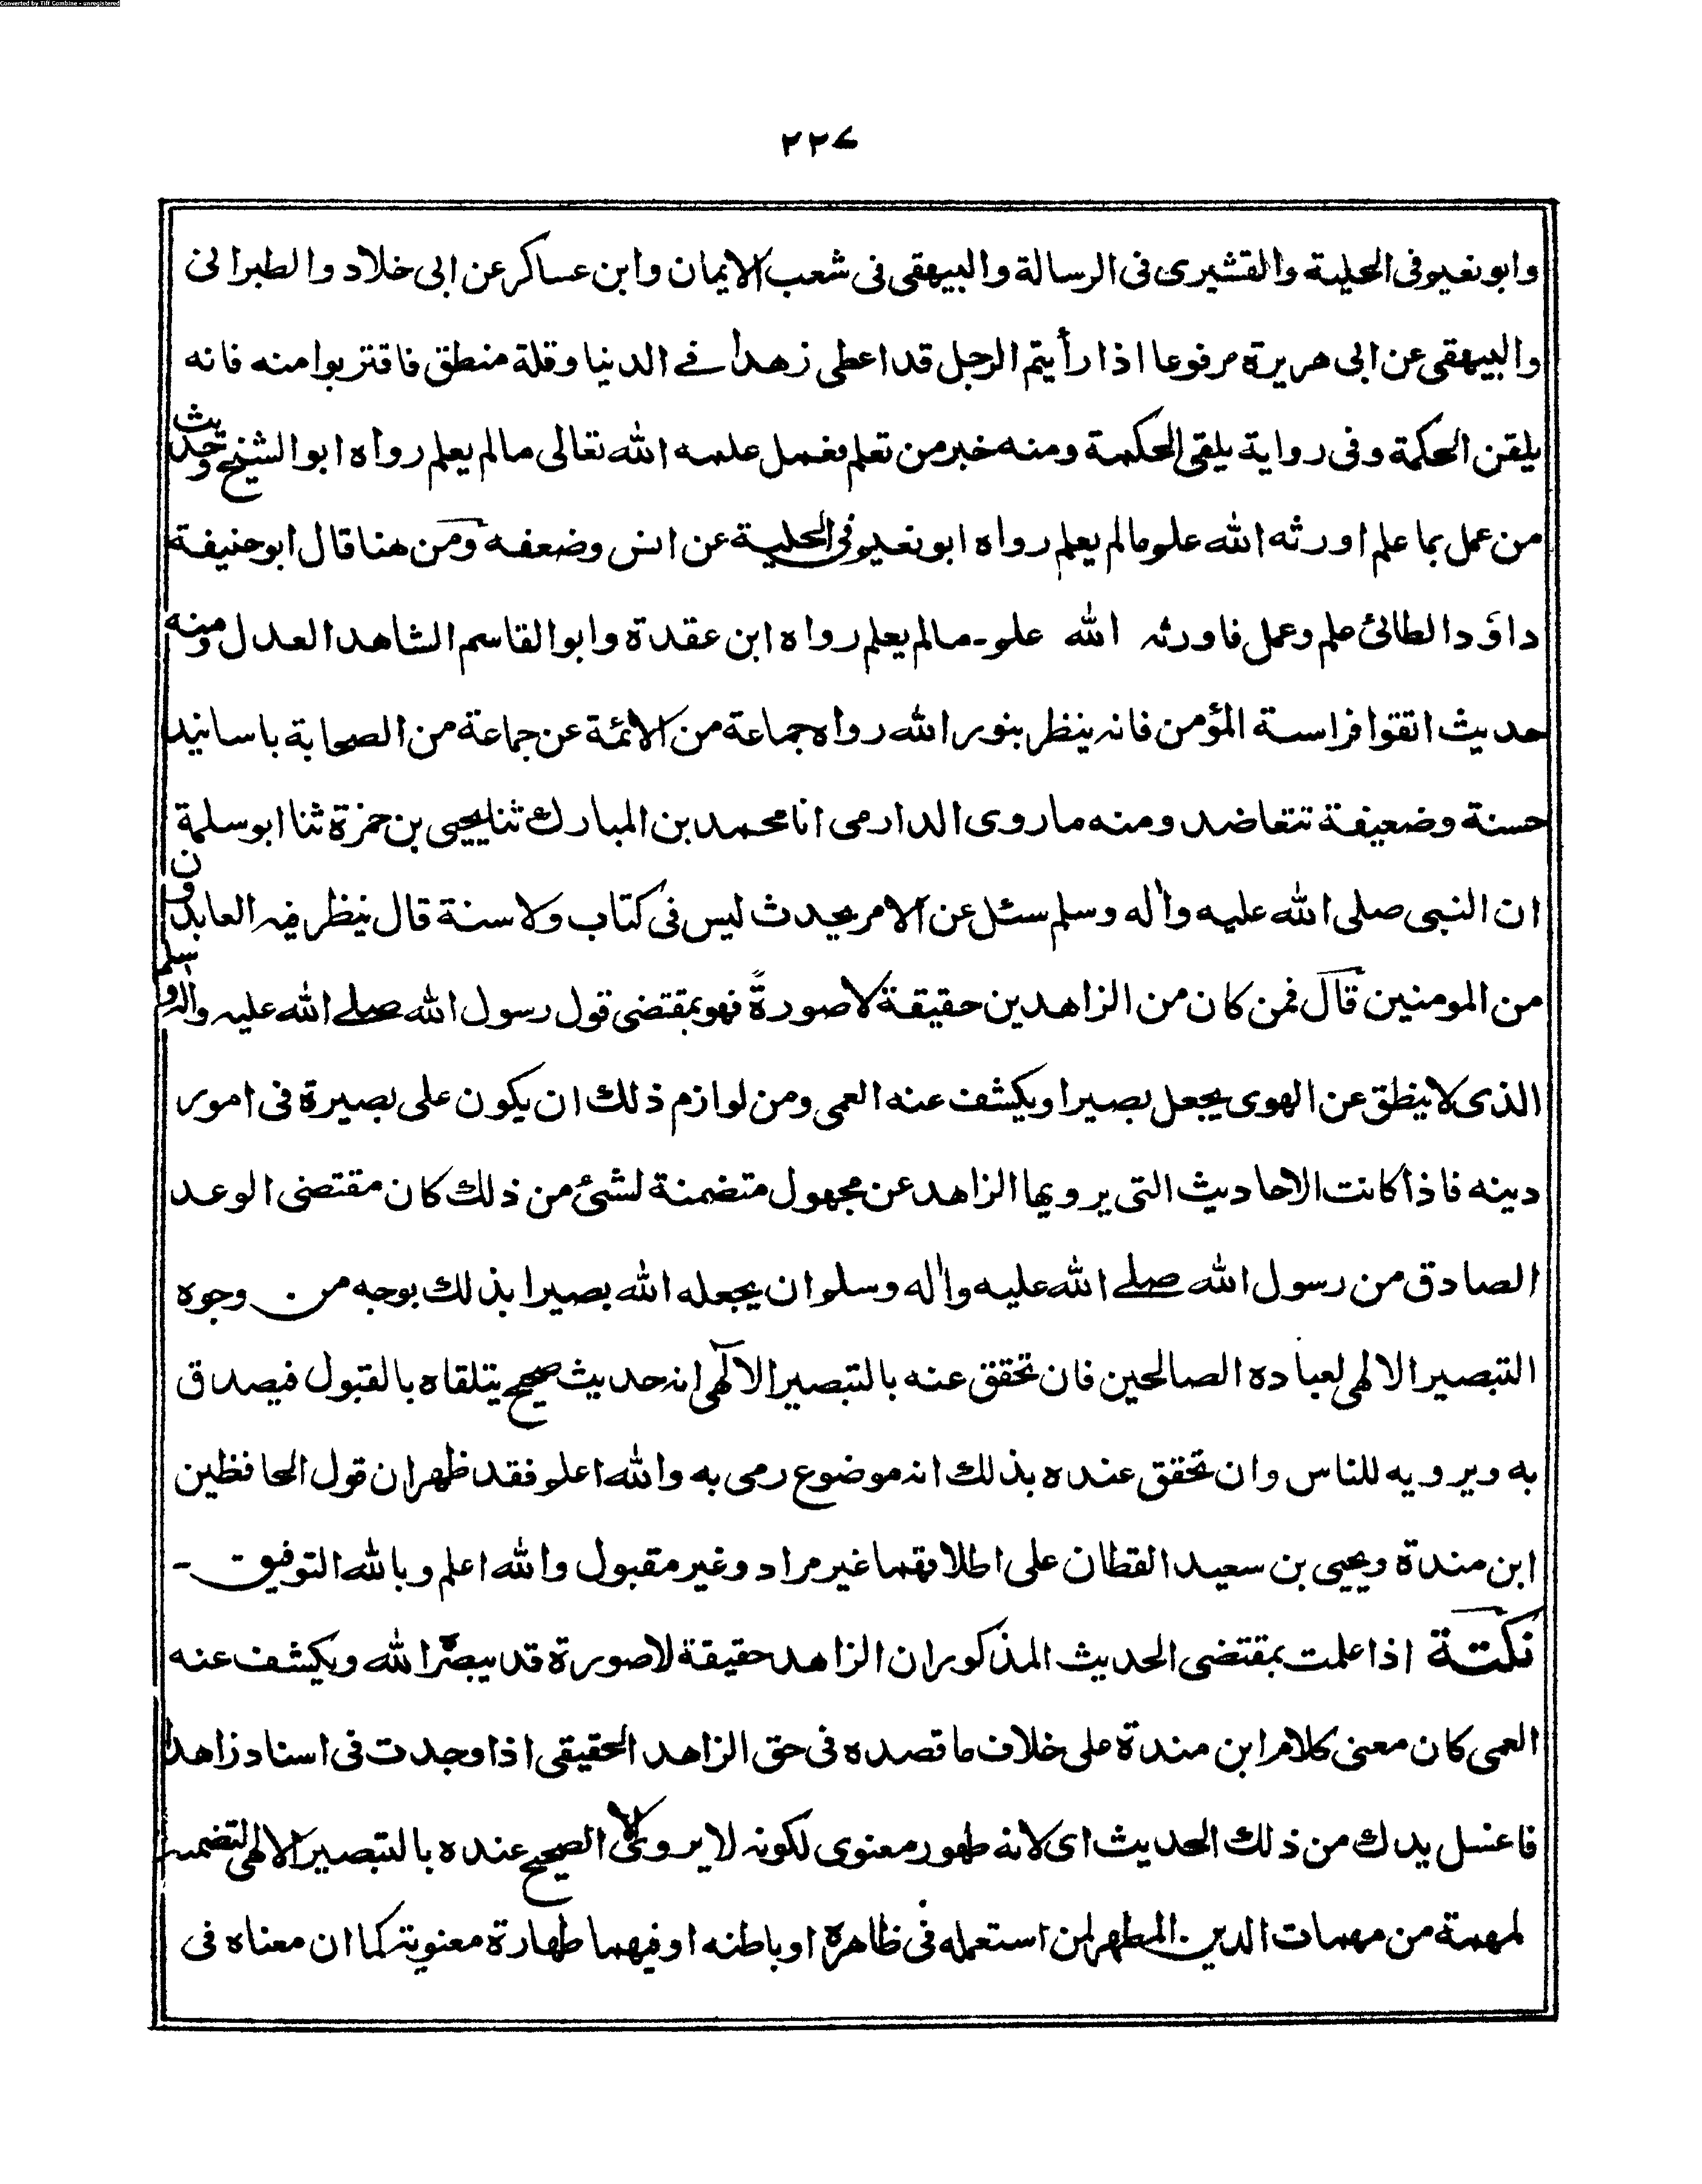 Converted by Tiff Combine - unregistered
٢٢٧
وابونعيم فى الحلية والقشيرى فى الرسالة والبيهقى فى شعب الايمان وابن عساكر عن ابى خلاد والطبرانى
والبيهقى عن ابى هريرة مرفوعا اذا رأيتم الرجل قد اعطى زهدا فے الدنيا وقلة منطق فاقتربوا منه فانه
يلقن الحكمة وفى رواية يلقى الحكمة ومنه خبر من تعلم فعمل علمه الله تعالى مالم يعلم رواه ابو الشيخ وحديث
من عمل بما علم اورثه الله علم مالم يعلم رواه ابونعيم فى الحلية عن انس وضعفه ومن هنا قال ابوحنيفة
داؤد الطائى علم وعمل فاورثه الله علم مالم يعلم رواه ابن عقدة وابو القاسم الشاهد العدل ومنه
حديث اتقوا فراسة المؤمن فانه ينظر بنور الله رواه جماعة من الائمة عن جماعة من الصحابة باسانيد
حسنة وضعيفة تتعاضد ومنه ما روى الدارمى انا محمد بن المبارك ثنا يحيى بن حمزة ثنا ابوسلمة
ان النبى صلى الله عليه واٰله وسلم سئل عن الامر يحدث ليس فى كتاب ولا سنة قال ينظر فيه العابدون
من المومنين قال فمن كان من الزاهدين حقيقة لا صورةً فهو بمقتضى قول رسول الله صلے الله عليه واٰله وسلم
الذى لا ينطق عن الهوى يجعل بصيرا ويكشف عنه العمى ومن لوازم ذلك ان يكون على بصيرة فى امور
دينه فاذا كانت الاحاديث التى يرويها الزاهد عن مجهول متضمنة لشئ من ذلك كان مقتضى الوعد
الصادق من رسول الله صلے الله عليه واٰله وسلم ان يجعله الله بصيرا بذلك بوجه من وجوه
التبصير الالهى لعباده الصالحين فان تحقق عنه بالتبصير الالٓهى انه حديث صحيح يتلقاه بالقبول فيصدق
به ويرويه للناس وان تحقق عنده بذلك انه موضوع رمى به والله اعلم فقد ظهر ان قول الحافظين
ابن مندة ويحيى بن سعيد القطان على اطلاقهما غير مراد وغير مقبول والله اعلم وبالله التوفيق -
نكتة اذا علمت بمقتضى الحديث المذكور ان الزاهد حقيقة لا صورة قد يبصره الله ويكشف عنه
العمى كان معنى كلام ابن مندة على خلاف ما قصده فى حق الزاهد الحقيقى اذا وجدت فى اسناد زاهدا
فاغسل يدك من ذلك الحديث اى لانه طهور معنوى لكونه لا يروى الا الصحيح عنده بالتبصير الالهى المتضمن
لمهمة من مهمات الدين المطهر لمن استعمله فى ظاهره او باطنه او فيهما طهارة معنوية كما ان معناه فى